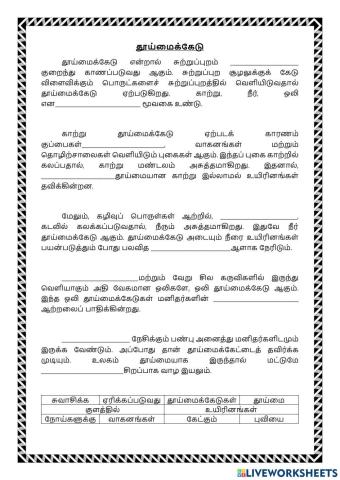 தூய்மைக்கேடு
தூய்மைக்கேடு என்றால் சுற்றுப்புறம் ____________
குறைந்து காணப்படுவது ஆகும். சுற்றுப்புற சூழலுக்குக் கேடு
விளைவிக்கும் பொருட்களைச் சுற்றுப்புறத்தில் வெளியிடுவதால்
தூய்மைக்கேடு ஏற்படுகிறது. காற்று, நீர், ஒலி
என____________ மூவகை உண்டு.
காற்று தூய்மைக்கேடு ஏற்படக் காரணம்
குப்பைகள்____________, வாகனங்கள் மற்றும்
தொழிற்சாலைகள் வெளியிடும் புகைகள் ஆகும். இந்தப் புகை காற்றில்
கலப்பதால், காற்று மண்டலம் அசுத்தமாகிறது. இதனால்,
____________தூய்மையான காற்று இல்லாமல் உயிரினங்கள்
தவிக்கின்றன.
மேலும், கழிவுப் பொருள்கள் ஆற்றில், ____________,
கடலில் கலக்கப்படுவதால், நீரும் அசுத்தமாகிறது. இதுவே நீர்
தூய்மைக்கேடு ஆகும். தூய்மைக்கேடு அடையும் நீரை உயிரினங்கள்
பயன்படுத்தும் போது பலவித ____________ஆளாக நேரிடும்.
____________மற்றும் வேறு சில கருவிகளில் இருந்து
வெளியாகும் அதி வேகமான ஒலிகளே, ஒலி தூய்மைக்கேடு ஆகும்.
இந்த ஒலி தூய்மைக்கேடுகள் மனிதர்களின் ____________
ஆற்றலைப் பாதிக்கின்றது.
____________ நேசிக்கும் பண்பு அனைத்து மனிதர்களிடமும்
இருக்க வேண்டும். அப்போது தான் தூய்மைக்கேட்டைத் தவிர்க்க
முடியும். உலகம் தூய்மையாக இருந்தால் மட்டுமே
____________சிறப்பாக வாழ இயலும்.
சுவாசிக்க ஏரிக்கப்படுவது தூய்மைக்கேடுகள் தூய்மை
குளத்தில் உயிரினங்கள்
நோய்களுக்கு வாகனங்கள் கேட்கும் புவியை
LIVEWORKSHEETS